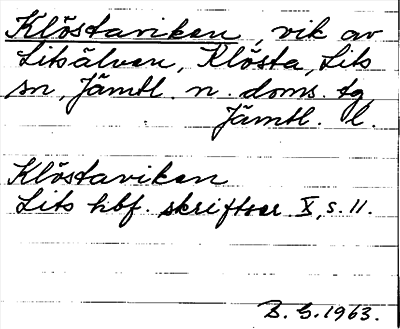 Klöstaviken, vik av
Litsälven, Klösta, Lits
sn, Jämtl. n. doms. tg
Jämtl. l.
Klöstaviken
Lits hbf. skriftser. X, s. 11.
B. G. 1963.